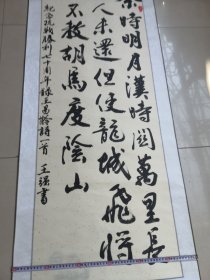 秦時明月漢時關萬里長
人未還但使龍城飛將
不教胡馬度陰山
紀念抗戰勝利七十周年錄王昌齡詩一首 王強書